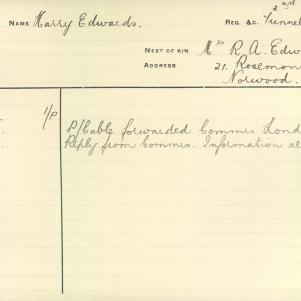 2nd
NAME Harry Edwards. REG. &C. Tunnel
NEXT OF KIN Mrs R. A. Edw
ADDRESS 21. Rosemon
Norwood.
1/p P/Cable forwarded Commrs Lond
Reply from Commrs. Information se